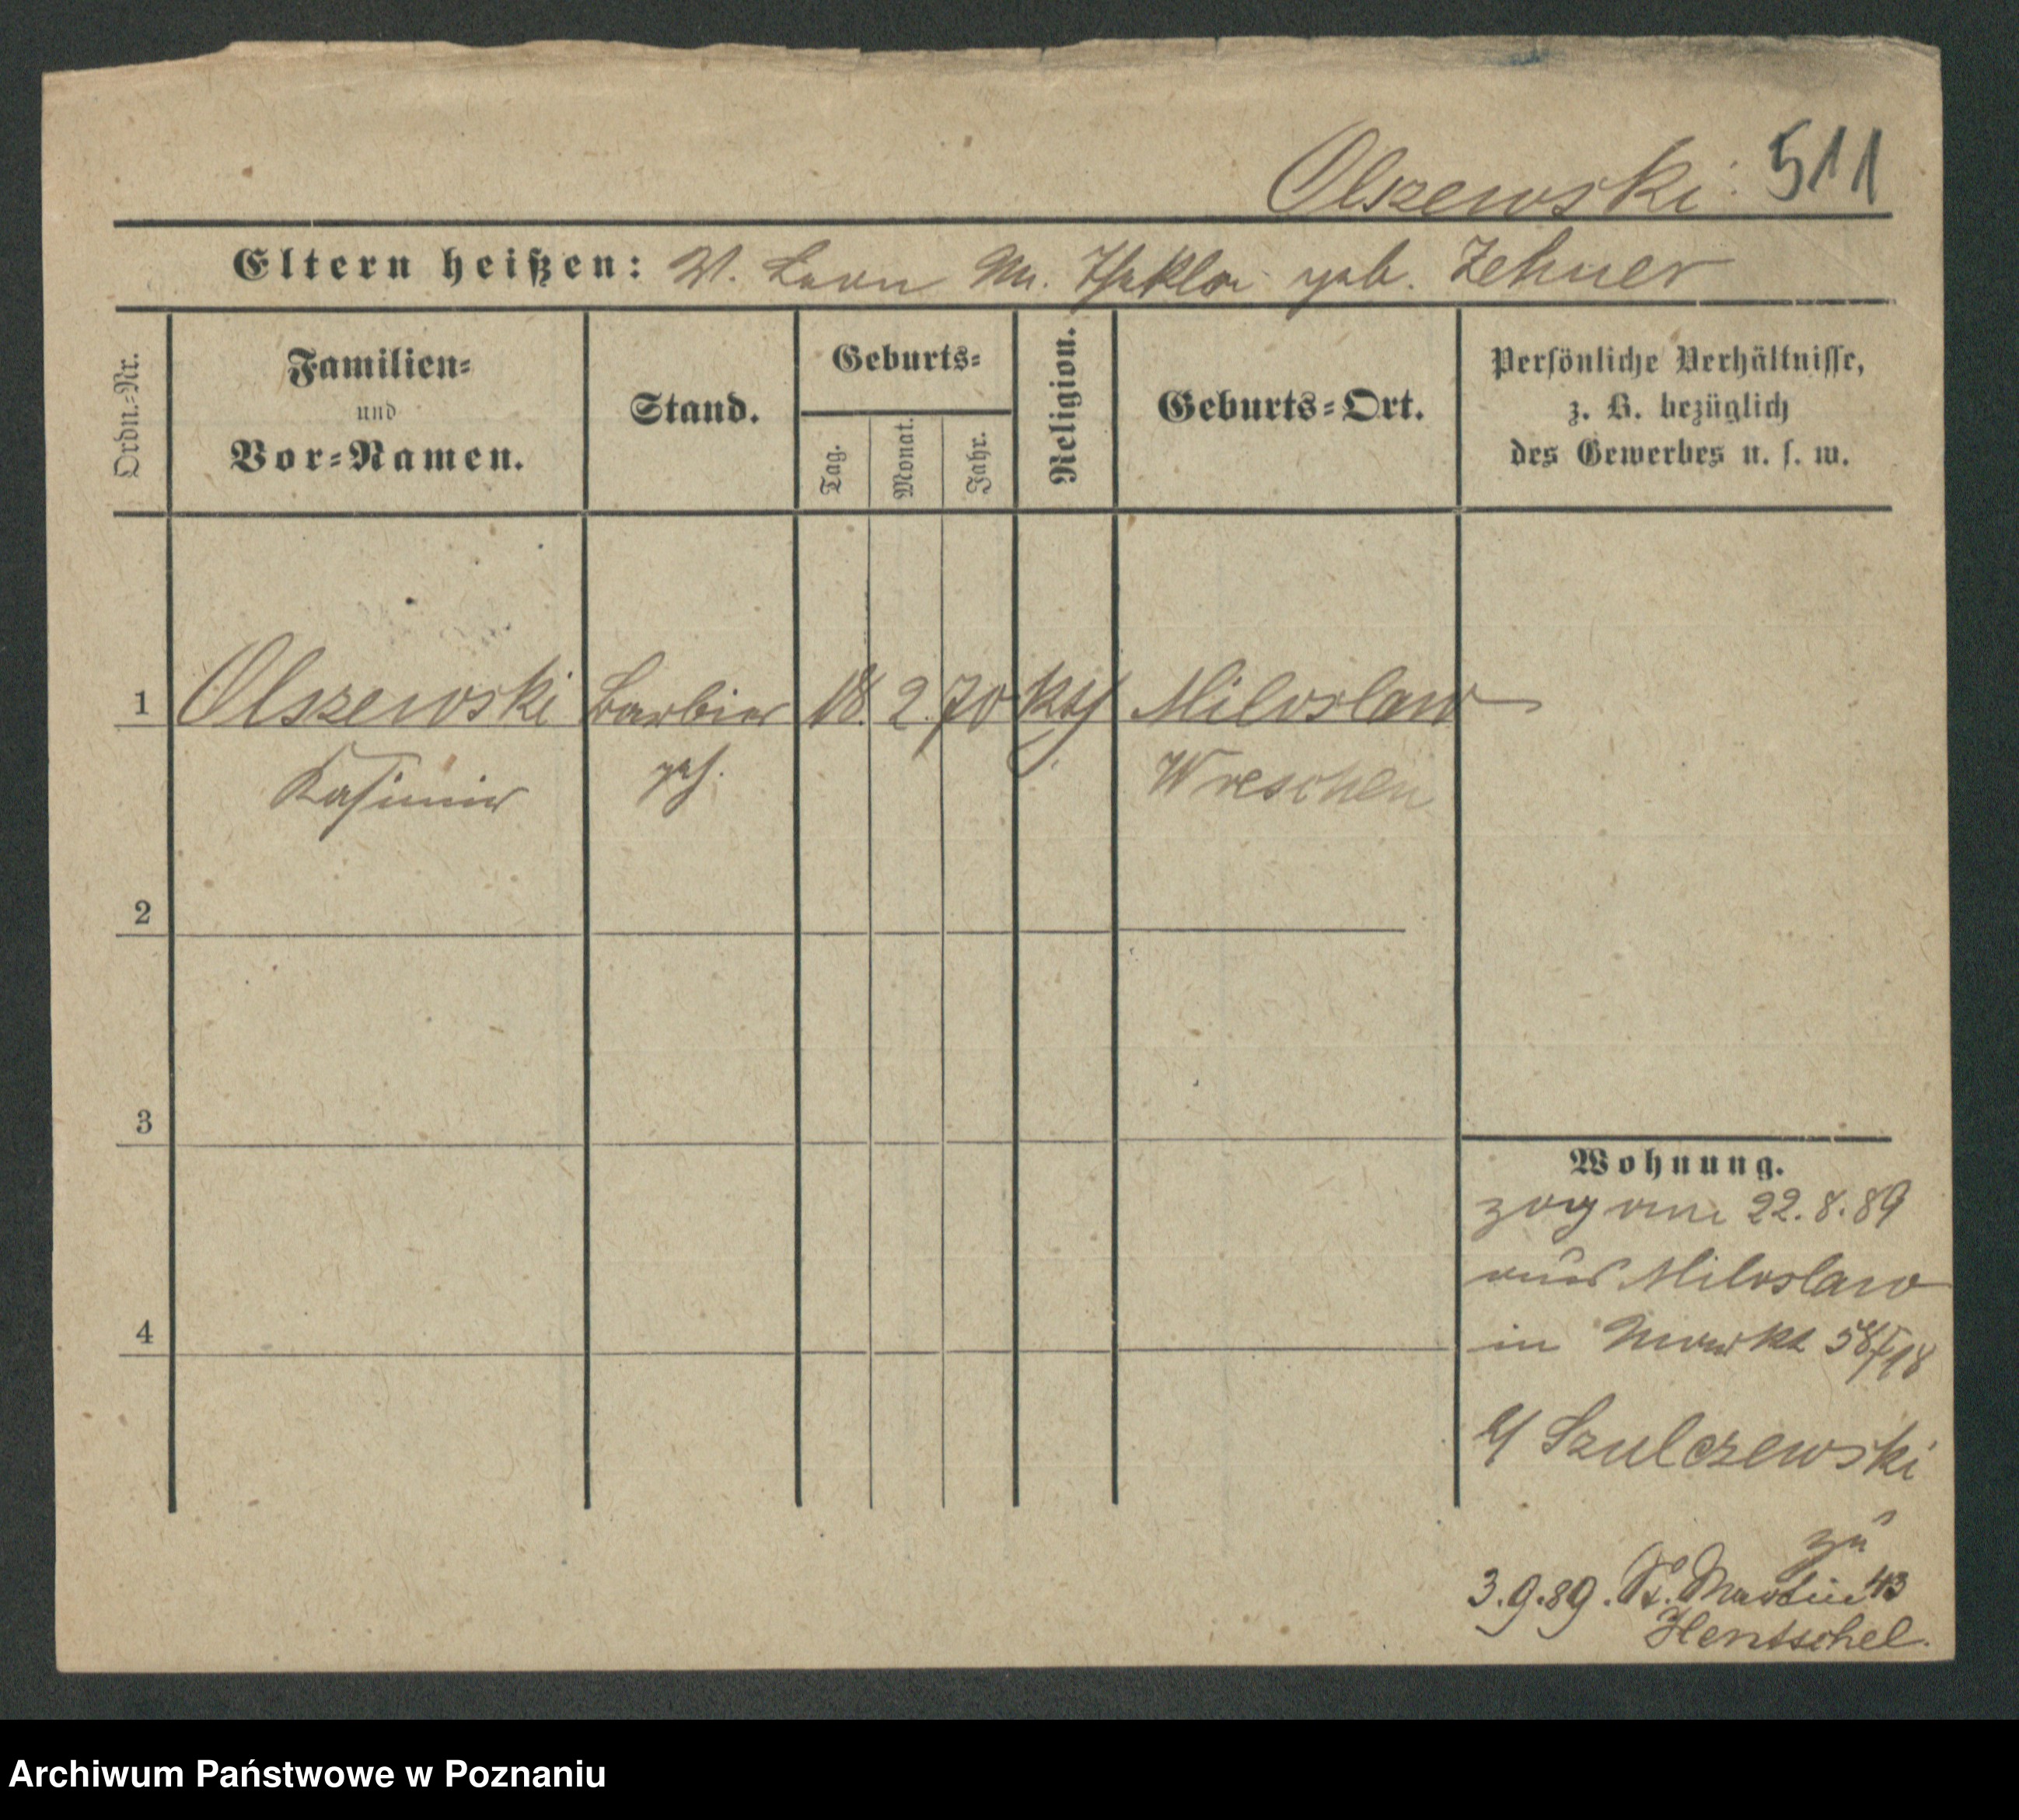 Olszewski. 511
Eltern heißen: V. Leon M. Thekla geb. Zehner
Ordn.-Nr.
Familien-
und
Vor-Namen.
Stand.
Geburts-
Tag.
Monat.
Jahr.
Religion.
Geburts-Ort.
Persönliche Verhältnisse,
z. B. bezüglich
des Gewerbes u. s. w.
1 Olszewski Barbier 18. 2. 70 kth Miloslaw
Kasimir geh. Wreschen
2
3
4
Wohnung.
zog am 22.8.89
aus Miloslaw
in Markt 58/I18
b/ Szulczewski
zu
3.9.89. St. Martin 43
Hentschel.
Archiwum Państwowe w Poznaniu